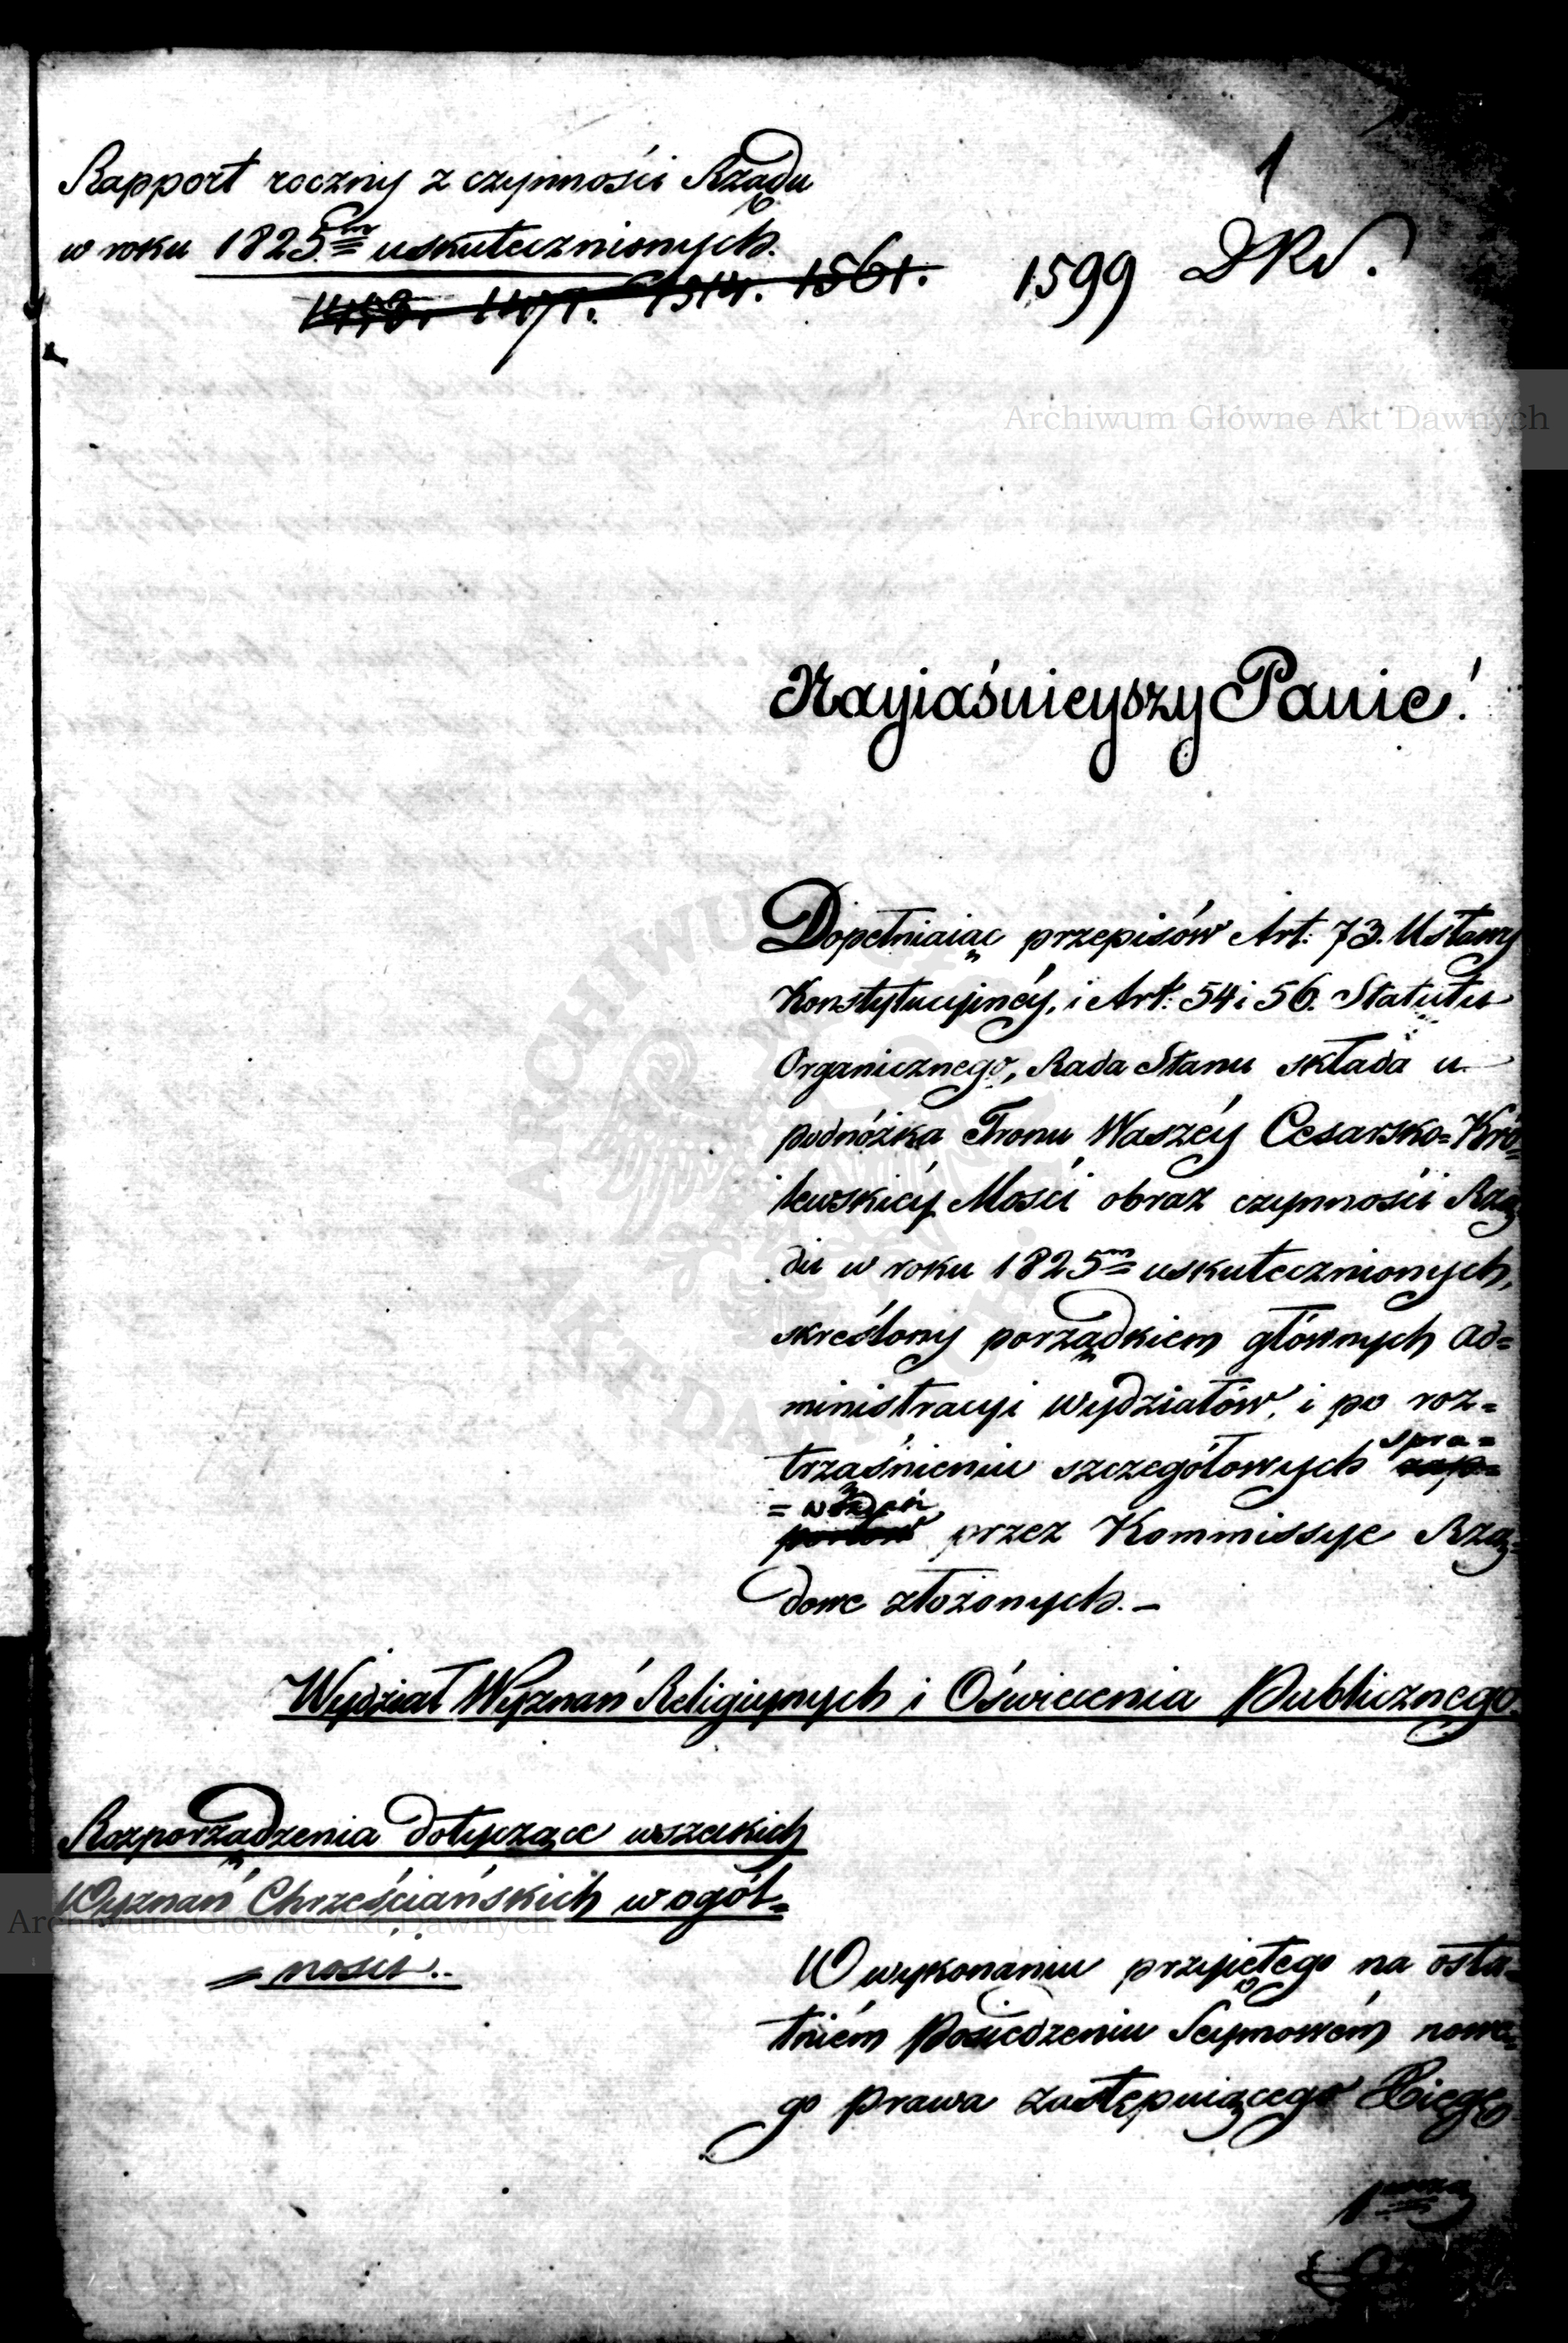 Rapport roczny z czynności Rządu
w roku 1825m uskutecznionych.
1477. 1514. 1561.
1
1599 DRS.
Archiwum Główne Akt Dawnych
Nayiaśnieyszy Panie!
Dopełniaiąc przepisów Art: 73. Ustawy
Konstytucyjnéy, i Art: 54 i 56. Statutu
Organicznego, Rada Stanu składa u
podnóżka Tronu Waszéy Cesarsko=Kró=
lewskiéy Mości obraz czynności Rzą
du w roku 1825m uskutecznionych,
skreślony porządkiem głównych ad=
ministracyi wydziałów, i po roz=
trząśnieniu szczegółowych spra=
=wozdań przez Kommissye Rzą=
dowe złożonych. –
Wydział Wyznań Religiynych i Oświecenia Publicznego.
Rozporządzenia dotyczące wszelkich
Wyznań Chrześciańskich w ogól=
=ności.
Archiwum Główne Akt Dawnych
W wykonaniu przyiętego na osta=
tniém Posiedzeniu Seymowém nowe=
go prawa zastępuiącego Xięgę
1wszą
ARCHIWUM GŁÓWNE
AKT DAWNYCH